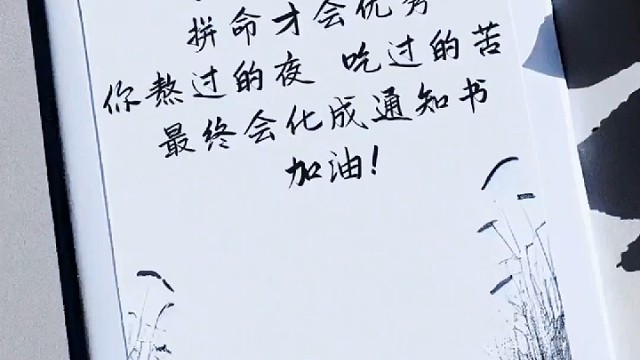 拼命才会优秀
你熬过的夜 吃过的苦
最终会化成通知书
加油!